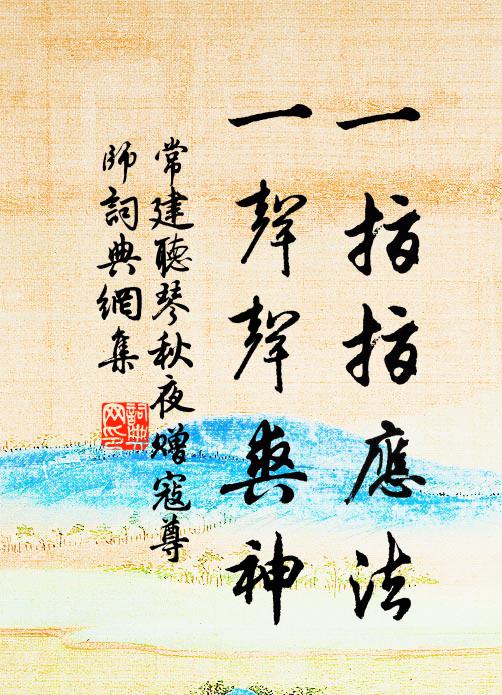 一指指應法
一聲聲爽神
常建聽琴秋夜贈寇尊
師詞典網集
詞典網印